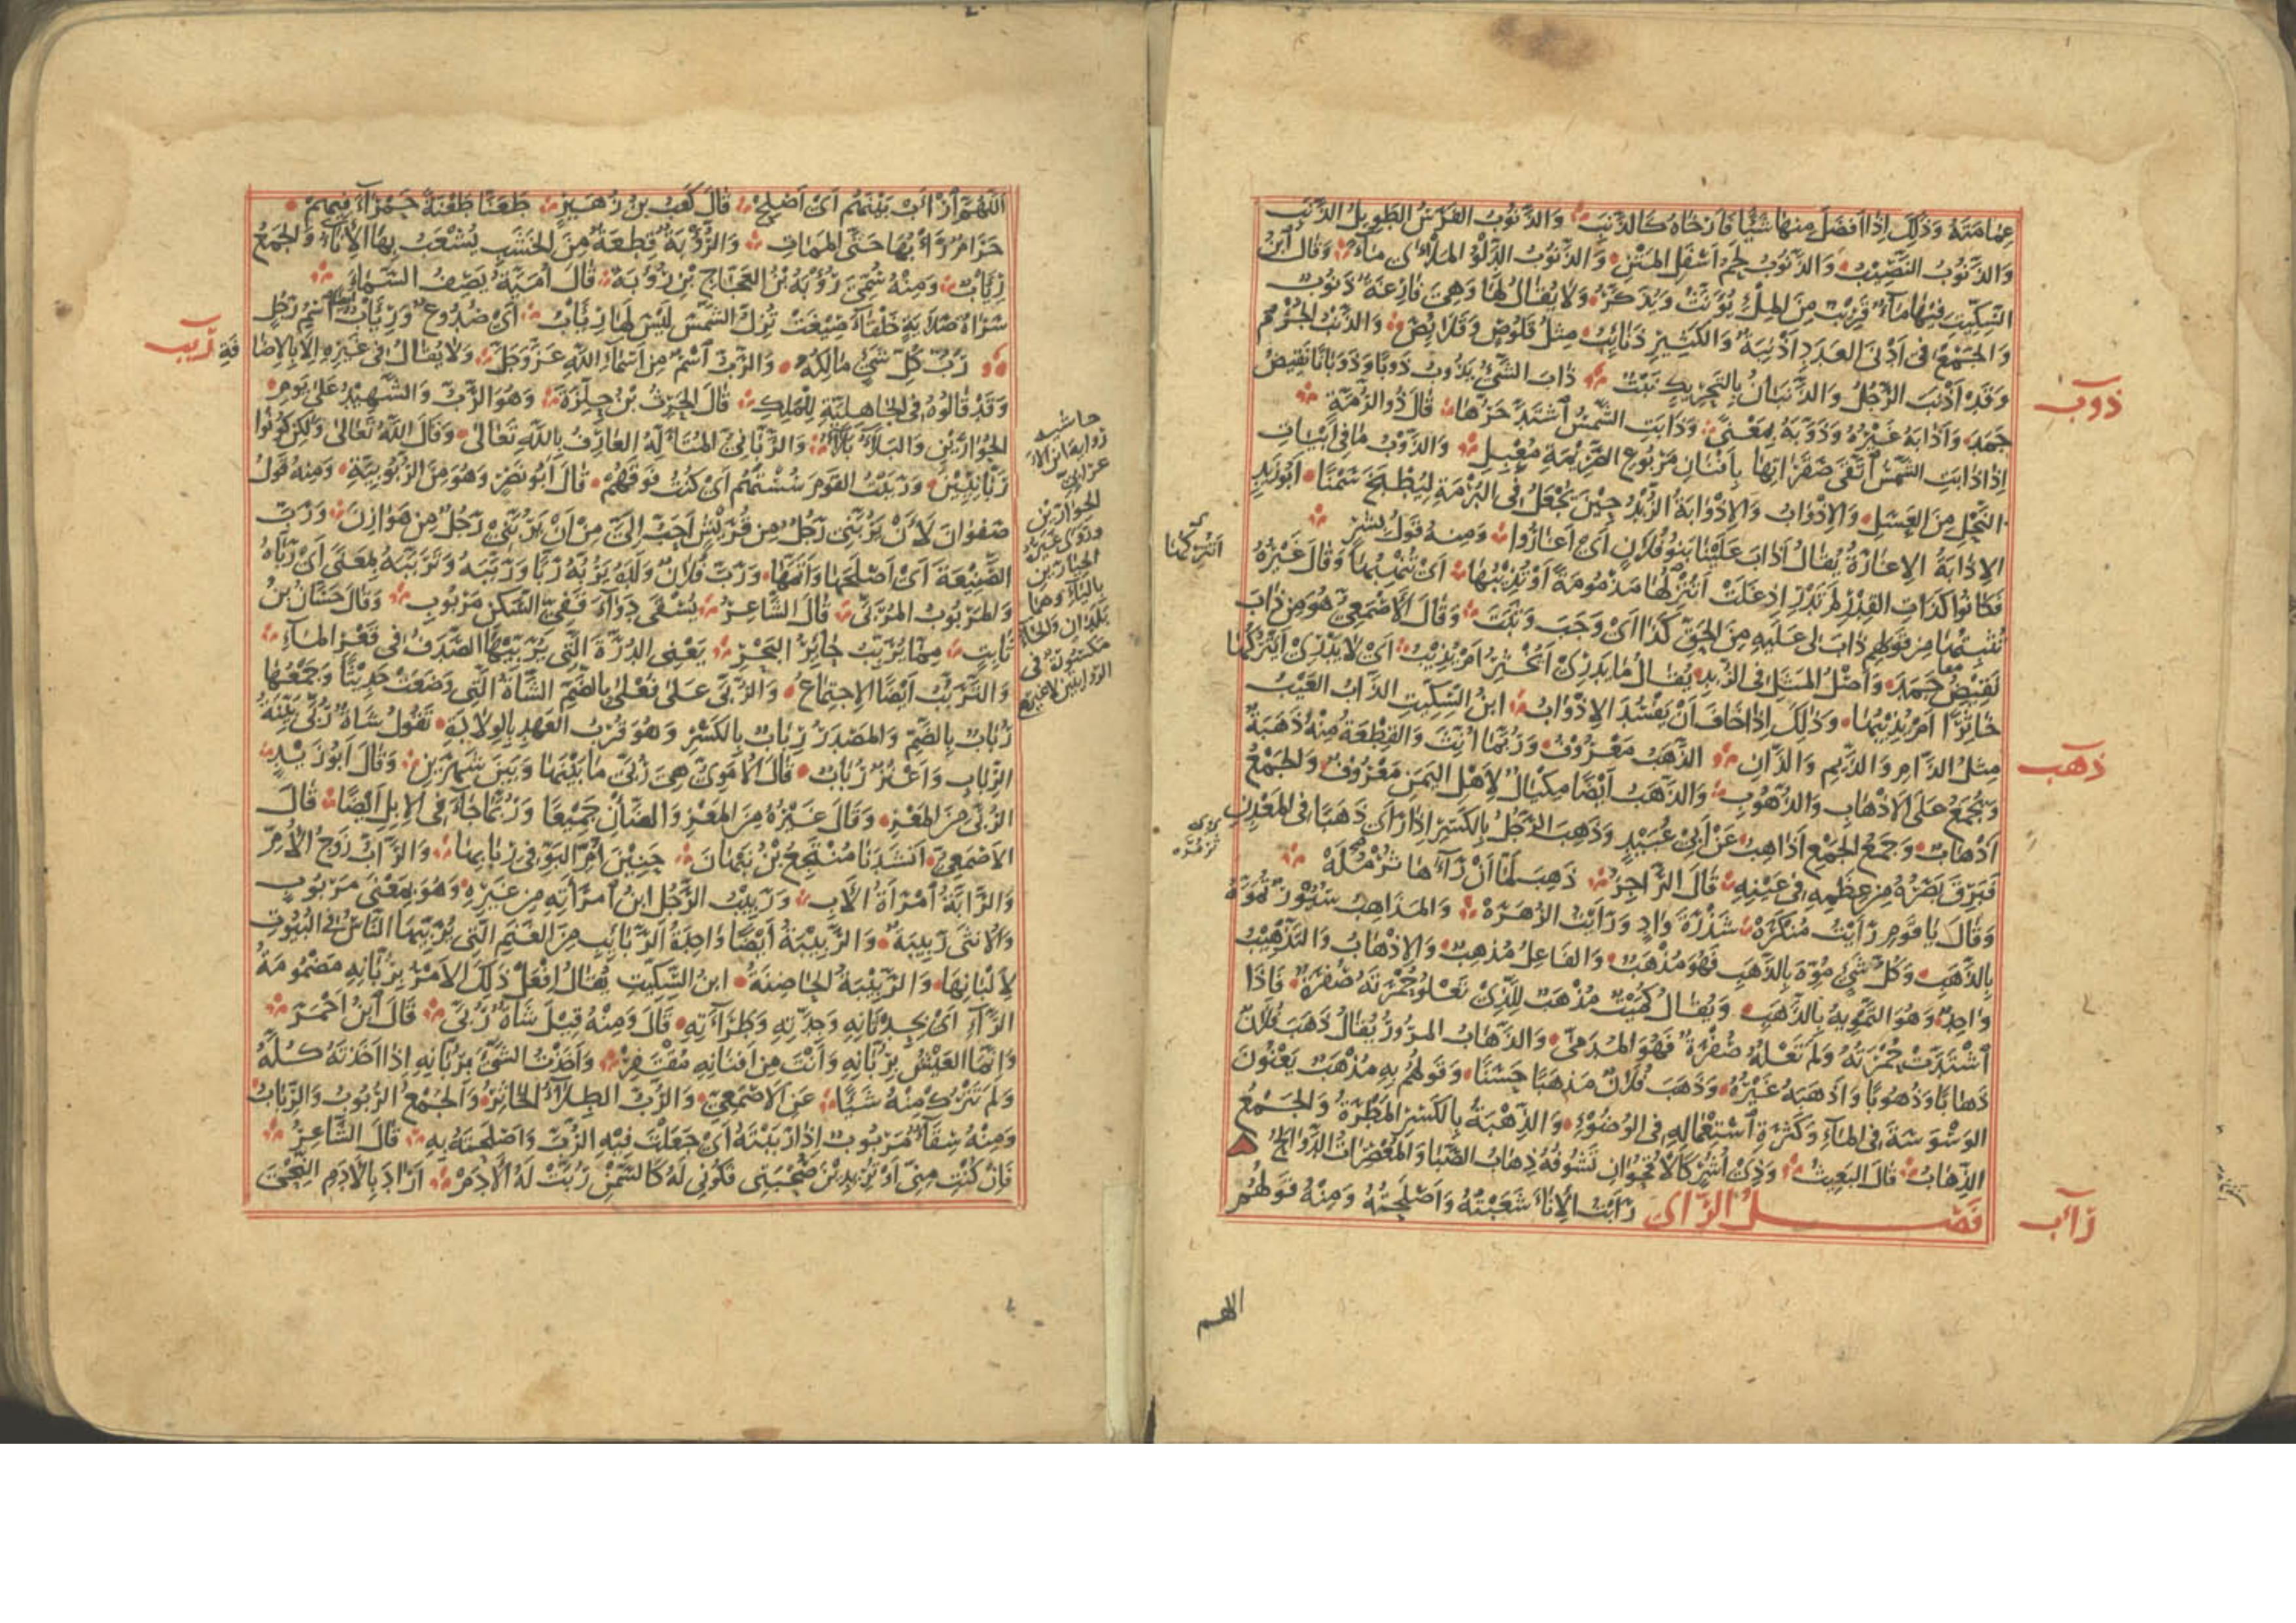 عِمَامَتَهُ وَذٰلِكَ اِذَا اَفْضَلَ مِنْهَا شَيْئًا فَاَرْخَاهُ كَالذَّنَبِ وَالذَّنُوبُ الفَرَسُ الطَّوِيلُ الذَّنَبِ
وَالذَّنُوبُ النَّصِيبُ وَالذَّنُوبُ لَحْمُ اَسْفَلِ المَتْنِ وَالذَّنُوبُ الدَّلْوُ المَلْأَى مَاءً وَقَالَ ابْنُ
السِّكِّيتِ فِيهَا مَاءٌ قَرِيبٌ مِنَ المِلْءِ تُؤَنَّثُ وَتُذَكَّرُ وَلَا يُقَالُ لَهَا وَهِيَ فَارِغَةٌ ذَنُوبٌ
وَالجَمْعُ فِى اَدْنَى العَدَدِ اَذْنِبَةٌ وَالكَثِيرِ ذَنَائِبُ مِثْلُ قَلُوصٍ وَقَلَائِصَ وَالذَّنْبُ الجُرْمُ
وَقَدْ اَذْنَبَ الرَّجُلُ وَالذَّنَبَانُ بِالتَّحْرِيكِ نَبْتٌ ذَابَ الشَّيْءُ يَذُوبُ ذَوْبًا وَذَوَبَانًا نَقِيضُ
ذوب
جَمَدَ وَاَذَابَهُ غَيْرُهُ وَذَوَّبَهُ بِمَعْنًى وَذَابَتِ الشَّمْسُ اشْتَدَّ حَرُّهَا قَالَ ذُو الرُّمَّةِ
اِذَا ذَابَتِ الشَّمْسُ اتَّقَى صَقَرَاتِهَا بِاَفْنَانِ مَرْبُوعِ الصَّرِيمَةِ مُعْبِلِ وَالذَّوْبُ مَا فِى اَبْيَاتِ
النَّحْلِ مِنَ العَسَلِ وَالاِذْوَابُ وَالاِذْوَابَةُ الزُّبْدُ حِينَ يُجْعَلُ فِى البُرْمَةِ لِيُطْبَخَ سَمْنًا اَبُو زَيْدٍ
الاِذَابَةُ الاِغَارَةُ يُقَالُ اَذَابَ عَلَيْنَا بَنُو فُلَانٍ اَيْ اَغَارُوا وَمِنْهُ قَوْلُ بِشْرٍ
فَكَانُوا كَذَاتِ القِدْرِ لَمْ تَدْرِ اِذْ غَلَتْ اَتُنْزِلُهَا مَذْمُومَةً اَوْ تُذِيبُهَا اَيْ تُنْهِبُهَا وَقَالَ غَيْرُهُ
تُثْبِتُهَا مِنْ قَوْلِهِمْ ذَابَ لِى عَلَيْهِ مِنَ الحَقِّ كَذَا اَيْ وَجَبَ وَثَبَتَ وَقَالَ الاَصْمَعِيُّ هُوَ مِنْ ذَابَ
نَقِيضُ جَمَدَ وَاَصْلُ المَثَلِ فِى الزُّبْدِ يُقَالُ مَا يَدْرِى اَيُخْثِرُ اَمْ يُذِيبُ اَيْ لَا يَدْرِى اَيَتْرُكُهَا
خَاثِرَةً اَمْ يُذِيبُهَا وَذٰلِكَ اِذَا خَافَ اَنْ يَفْسُدَ الاِذْوَابُ ابْنُ السِّكِّيتِ الذَّابُ العَيْبُ
مِثْلُ الذَّامِ وَالذَّيْمِ وَالذَّانِ الذَّهَبُ مَعْرُوفٌ وَرُبَّمَا اُنِّثَ وَالقِطْعَةُ مِنْهُ ذَهَبَةٌ
ذهب
وَيُجْمَعُ عَلَى الاَذْهَابِ وَالذُّهُوبِ وَالذَّهَبُ اَيْضًا مِكْيَالٌ لِاَهْلِ اليَمَنِ مَعْرُوفٌ وَالجَمْعُ
اَذْهَابٌ وَجَمْعُ الجَمْعِ اَذَاهِبُ عَنْ اَبِى عُبَيْدٍ وَذَهِبَ الرَّجُلُ بِالكَسْرِ اِذَا رَأَى ذَهَبًا فِى المَعْدِنِ
فَبَرَقَ بَصَرُهُ مِنْ عِظَمِهِ فِى عَيْنِهِ قَالَ الرَّاجِزُ ذَهِبَ لَمَّا اَنْ رَآهَا ثُرْمُلَهْ
وَقَالَ يَا قَوْمِ رَاَيْتُ مُنْكَرَهْ شَذْرَةَ وَادٍ وَرَاَيْتُ الزُّهَرَهْ وَالمَذَاهِبُ سُيُورٌ تُمَوَّهُ
بِالذَّهَبِ وَكُلُّ شَيْءٍ مُوِّهَ بِالذَّهَبِ فَهُوَ مُذْهَبٌ وَالفَاعِلُ مُذْهِبٌ وَالاِذْهَابُ وَالتَّذْهِيبُ
وَاحِدٌ وَهُوَ التَّمْوِيهُ بِالذَّهَبِ وَيُقَالُ كُمَيْتٌ مُذْهَبٌ لِلَّذِى تَعْلُو حُمْرَتَهُ صُفْرَةٌ فَاِذَا
اشْتَدَّتْ حُمْرَتُهُ وَلَمْ تَعْلُهُ صُفْرَةٌ فَهُوَ المُدَمَّى وَالذَّهَابُ المُرُورُ يُقَالُ ذَهَبَ فُلَانٌ
ذَهَابًا وَذُهُوبًا وَاَذْهَبَهُ غَيْرُهُ وَذَهَبَ فُلَانٌ مَذْهَبًا حَسَنًا وَقَوْلُهُمْ بِهِ مُذْهَبٌ يَعْنُونَ
الوَسْوَسَةَ فِى المَاءِ وَكَثْرَةِ اسْتِعْمَالِهِ فِى الوُضُوءِ وَالذِّهْبَةُ بِالكَسْرِ المَطْرَةُ وَالجَمْعُ
الذِّهَابُ قَالَ البَعِيثُ وَذِى اُشُرٍ كَالاُقْحُوَانِ تَشُوفُهُ ذِهَابُ الصَّبَا وَالمُعْصِرَاتُ الدَّوَالِحُ
فَصْلُ الرَّاى رَاَبْتُ الاِنَاءَ شَعَبْتُهُ وَاَصْلَحْتُهُ وَمِنْهُ قَوْلُهُمُ
رأب
اللهم
اَللّٰهُمَّ ارْاَبْ بَيْنَهُمْ اَيْ اَصْلِحْ قَالَ كَعْبُ بْنُ زُهَيْرٍ طَعَنَّا طَعْنَةً حَمْرَاءَ فِيهِمْ
حَرَامٌ رَأْبُهَا حَتَّى المَمَاتِ وَالرُّؤْبَةُ قِطْعَةٌ مِنَ الخَشَبِ يُشْعَبُ بِهَا الاِنَاءُ وَالجَمْعُ
رِئَابٌ وَمِنْهُ سُمِّيَ رُؤْبَةُ بْنُ العَجَّاجِ بْنِ رُؤْبَةَ قَالَ اُمَيَّةُ يَصِفُ السَّمَاءَ
سَرَاةُ صَلَايَةٍ خَلْقَاءَ صِيغَتْ تُزِلُّ الشَّمْسَ لَيْسَ لَهَا رِئَابُ اَيْ صُدُوعٌ وَرِئَابٌ اسْمُ رَجُلٍ
رَبُّ كُلِّ شَيْءٍ مَالِكُهُ وَالرَّبُّ اسْمٌ مِنْ اَسْمَاءِ اللّٰهِ عَزَّ وَجَلَّ وَلَا يُقَالُ فِى غَيْرِهِ اِلَّا بِالاِضَا فَةِ
ربب
وَقَدْ قَالُوهُ فِى الجَاهِلِيَّةِ لِلْمَلِكِ قَالَ الحٰرِثُ بْنُ حِلِّزَةَ وَهُوَ الرَّبُّ وَالشَّهِيدُ عَلَى يَوْمِ
الحِوَارَيْنِ وَالبَلَاءُ بَلَاءُ وَالرَّبَّانِيُّ المُتَاَلِّهُ العَارِفُ بِاللّٰهِ تَعَالَى وَقَالَ اللّٰهُ تَعَالَى وَلٰكِنْ كُونُوا
رَبَّانِيِّينَ وَرَبَبْتُ القَوْمَ سُسْتُهُمْ اَيْ كُنْتُ فَوْقَهُمْ قَالَ اَبُو نَصْرٍ وَهُوَ مِنَ الرُّبُوبِيَّةِ وَمِنْهُ قَوْلُ
صَفْوَانَ لَاَنْ يَرُبَّنِى رَجُلٌ مِنْ قُرَيْشٍ اَحَبُّ اِلَيَّ مِنْ اَنْ يَرُبَّنِى رَجُلٌ مِنْ هَوَازِنَ وَرَبَّ
الضَّيْعَةَ اَيْ اَصْلَحَهَا وَاَتَمَّهَا وَرَبَّ فُلَانٌ وَلَدَهُ يَرُبُّهُ رَبًّا وَرَبَّبَهُ وَتَرَبَّبَهُ بِمَعْنًى اَيْ رَبَّاهُ
وَالمَرْبُوبُ المُرَبَّى قَالَ الشَّاعِرُ يُسْقَى دَوَاءَ قَفِيِّ السَّكْنِ مَرْبُوبِ وَقَالَ حَسَّانُ بْنُ
ثَابِتٍ مِمَّا تَرَبَّبَ حَائِرُ البَحْرِ يَعْنِى الدُّرَّةَ الَّتِى يُرَبِّيهَا الصَّدَفُ فِى قَعْرِ المَاءِ
وَالتَّرَبُّبُ اَيْضًا الاِجْتِمَاعُ وَالرُّبَّى عَلَى فُعْلَى بِالضَّمِّ الشَّاةُ الَّتِى وَضَعَتْ حَدِيثًا وَجَمْعُهَا
رُبَابٌ بِالضَّمِّ وَالمَصْدَرُ رِبَابٌ بِالكَسْرِ وَهُوَ قُرْبُ العَهْدِ بِالوِلَادَةِ تَقُولُ شَاةٌ رُبَّى بَيِّنَةُ
الرِّبَابِ وَاَعْنُزٌ رُبَابٌ قَالَ الاُمَوِيُّ هِيَ رُبَّى مَا بَيْنَهَا وَبَيْنَ شَهْرَيْنِ وَقَالَ اَبُو زَيْدٍ
الرُّبَّى مِنَ المَعْزِ وَقَالَ غَيْرُهُ مِنَ المَعْزِ وَالضَّأْنِ جَمِيعًا وَرُبَّمَا جَاءَ فِى الاِبِلِ اَيْضًا قَالَ
الاَصْمَعِيُّ اَنْشَدَنَا مُنْتَجِعُ بْنُ نَبْهَانَ حَنِينَ اُمِّ البَوِّ فِى رِبَابِهَا وَالرَّابُّ زَوْجُ الاُمِّ
وَالرَّابَّةُ امْرَاَةُ الاَبِ وَرَبِيبُ الرَّجُلِ ابْنُ امْرَاَتِهِ مِنْ غَيْرِهِ وَهُوَ بِمَعْنَى مَرْبُوبٍ
وَالاُنْثَى رَبِيبَةٌ وَالرَّبِيبَةُ اَيْضًا وَاحِدَةُ الرَّبَائِبِ مِنَ الغَنَمِ الَّتِى يُرَبِّيهَا النَّاسُ فِى البُيُوتِ
لِاَلْبَانِهَا وَالرَّبِيبَةُ الحَاضِنَةُ ابْنُ السِّكِّيتِ يُقَالُ افْعَلْ ذٰلِكَ الاَمْرَ بِرُبَّانِهِ مَضْمُومَةُ
الرَّاءِ اَيْ بِحِدْثَانِهِ وَجِدَّتِهِ وَطَرَاءَتِهِ قَالَ وَمِنْهُ قِيلَ شَاةٌ رُبَّى قَالَ ابْنُ اَحْمَرَ
وَاِنَّمَا العَيْشُ بِرُبَّانِهِ وَاَنْتَ مِنْ اَفْنَانِهِ مُقْتَفِرْ وَاَخَذْتُ الشَّيْءَ بِرُبَّانِهِ اِذَا اَخَذْتَهُ كُلَّهُ
وَلَمْ تَتْرُكْ مِنْهُ شَيْئًا عَنِ الاَصْمَعِيِّ وَالرُّبُّ الطِّلَاءُ الخَاثِرُ وَالجَمْعُ الرُّبُوبُ وَالرِّبَابُ
وَمِنْهُ سِقَاءٌ مَرْبُوبٌ اِذَا رَبَبْتَهُ اَيْ جَعَلْتَ فِيهِ الرُّبَّ وَاَصْلَحْتَهُ بِهِ قَالَ الشَّاعِرُ
فَاِنْ كُنْتِ مِنِّى اَوْ تُرِيدِينَ صُحْبَتِى فَكُونِى لَهُ كَالسَّمْنِ رُبَّتْ لَهُ الاَدَمْ اَرَادَ بِالاَدَمِ النِّحْيَ
حاشية
الحوارين
بلدان